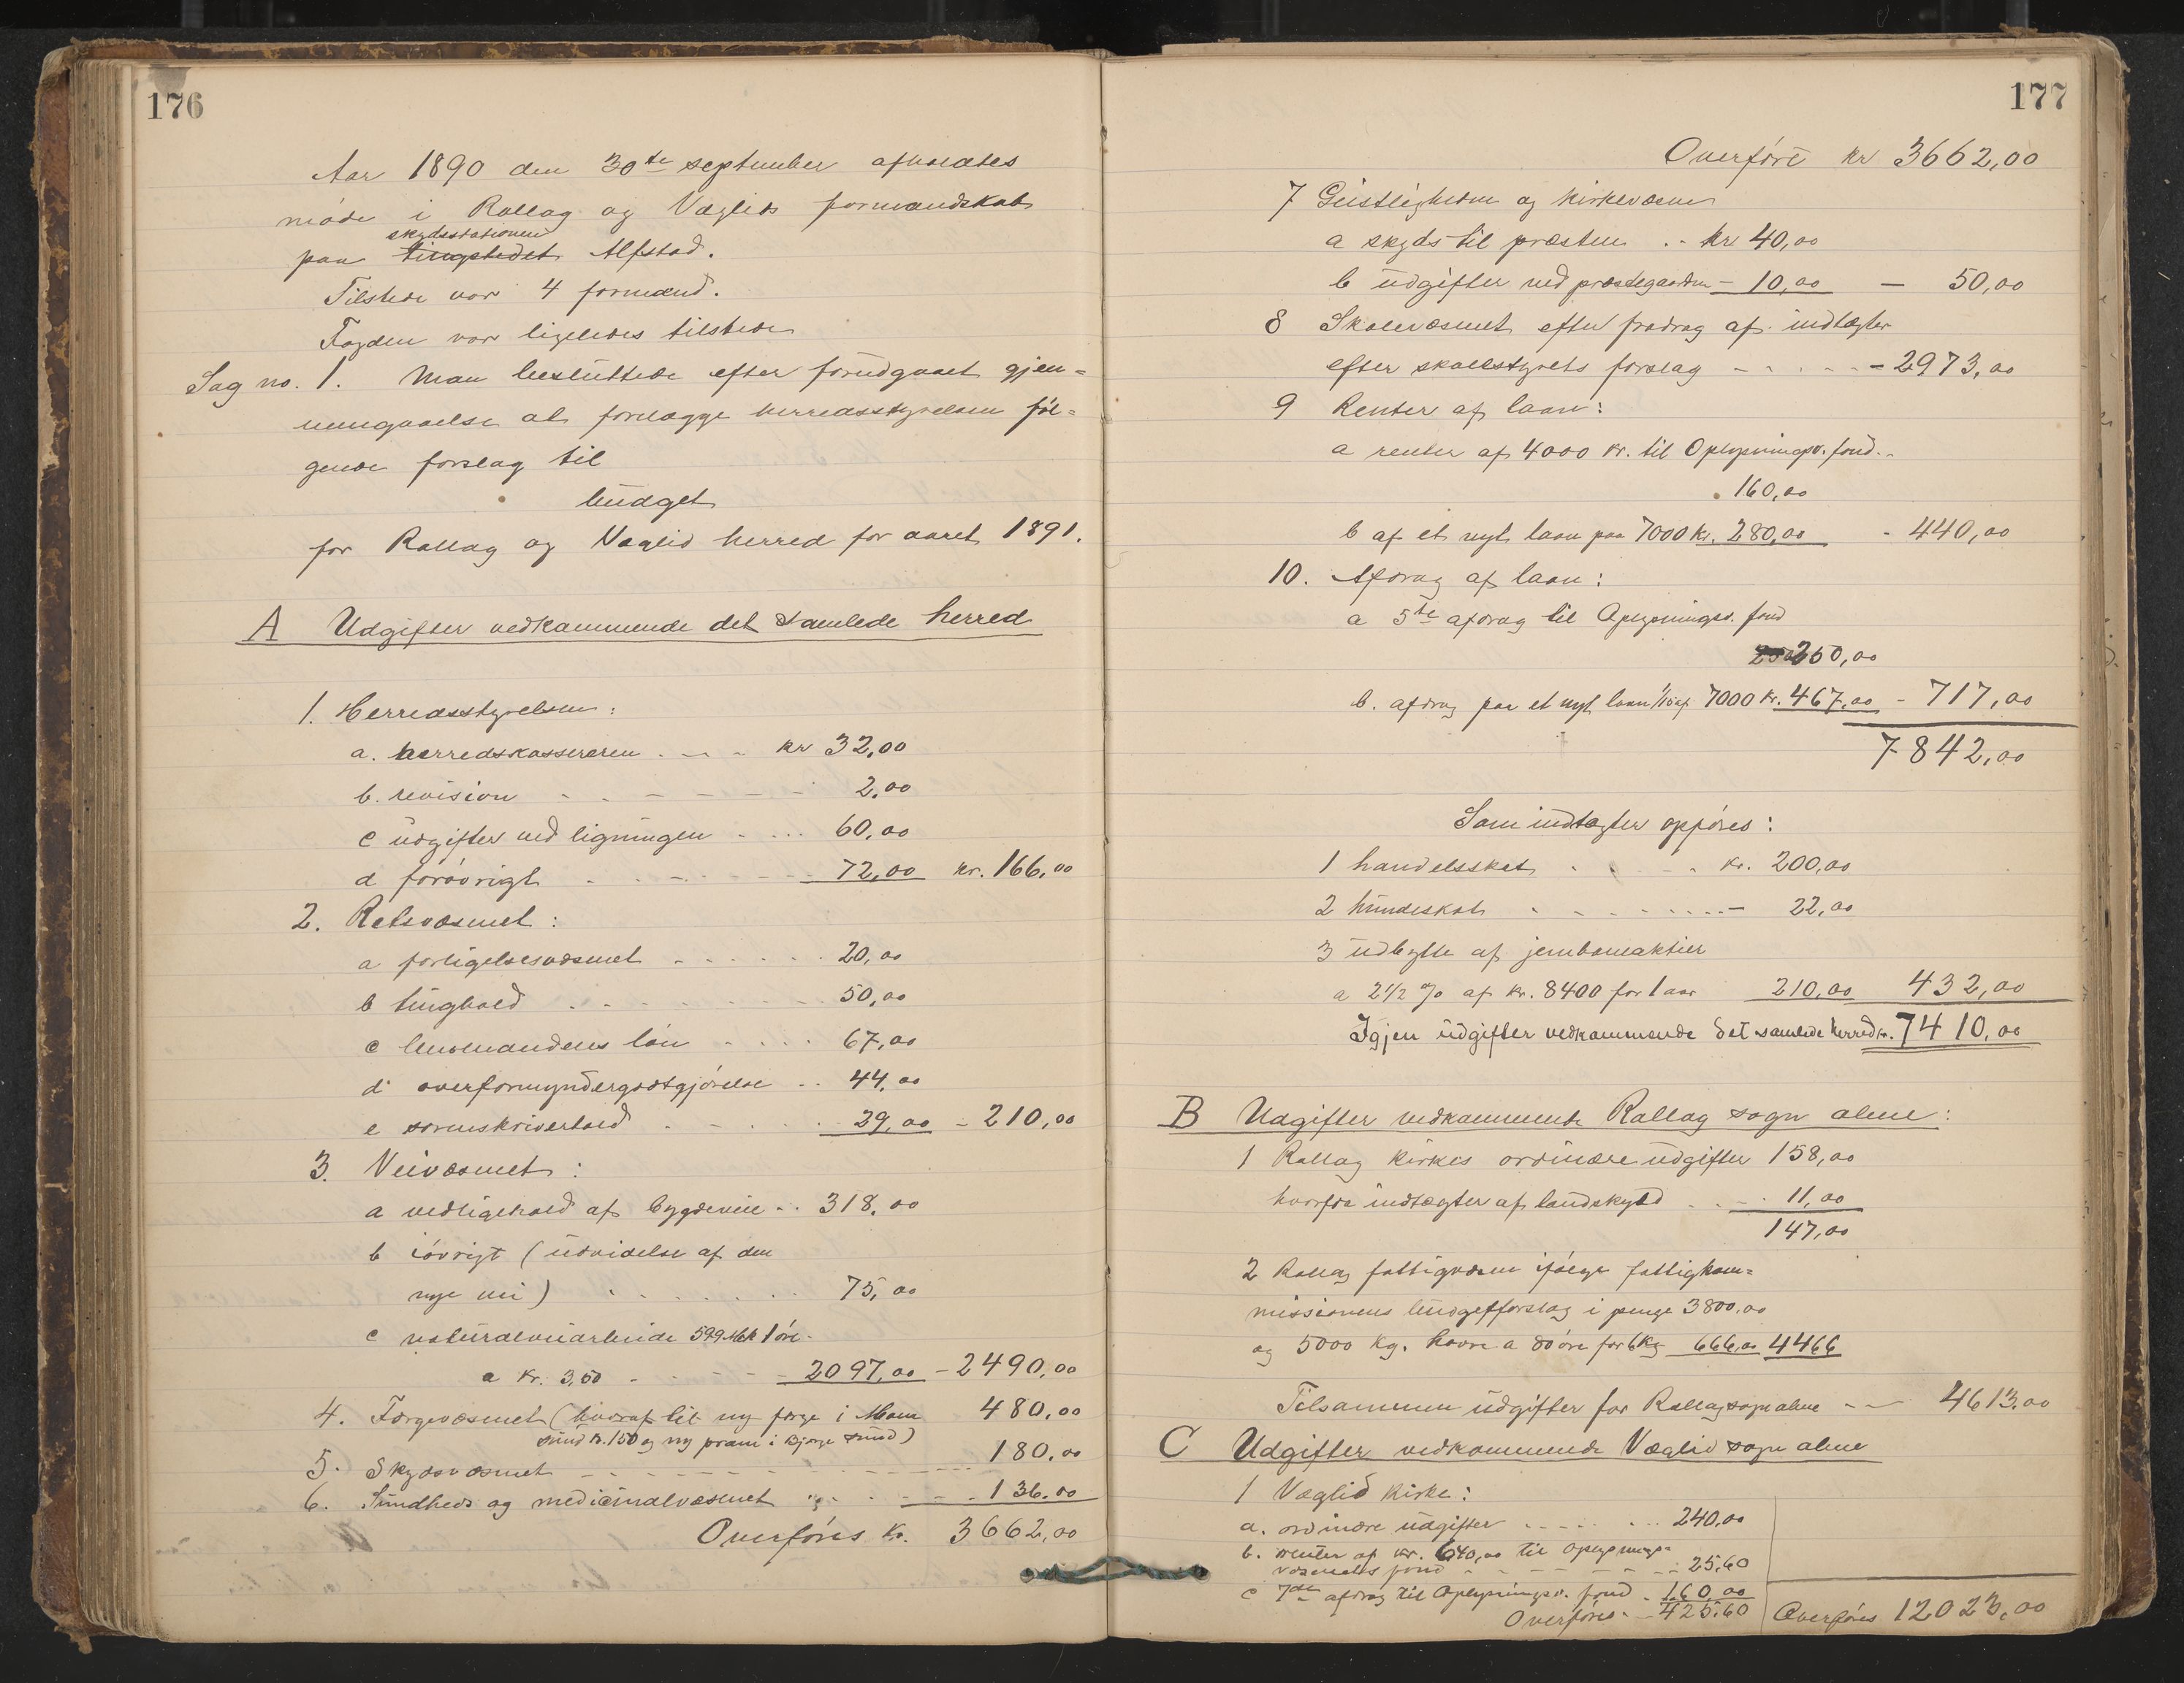 176
Aar 1890 den 30te september afholdtes
møde i Rollag og Væglids formandskab
skydsstationen
paa tingstedet Alfstad.
Tilstede var 4 formænd.
Fogden var ligeledes tilstede
Sag no. 1. Man besluttede efter forudgaaet gjen=
nemgaaelse at forelægge herredsstyrelsen føl=
gende forslag til
budget
for Rollag og Væglid herred for aaret 1891.
A Udgifter vedkommende det samlede herred
1. Herredsstyrelsen:
a. herredskassereren . - - kr 32,00
b. revision - - - - - - 2,00
c udgifter ved ligningen - ... 60,00
d forøvrigt - - - - - 72,00 kr. 166,00
2. Retsvæsenet:
a forligelsesvæsenet - - - - - 20,00
b tinghold . - - - - - 50,00
c lensmandens løn - - - - 67,00
d overformyndergodtgjørelse .. 44,00
e sorenskriverhold . - - - 29,00 - 210,00
3. Veivæsenet:
a vedligehold af bygdeveie .. 318,00
b iøvrigt (udvidelse af den
nye vei) - - - - - - 75,00
c naturalveiarbeide 599 Mrk 1 øre.
a kr. 3,50 - - - - - 2097,00 - 2490,00
4. Færgevæsenet (hvoraf til ny færge i Mom 480,00
sund kr. 150 og ny pram i Bjørge sund)
5. Skydsvæsenet - - - - - - - - - 180,00
6. Sundheds og medicinalvæsenet - - - - 136,00
Overføres kr. 3662,00
177
Overført kr 3662,00
7 Geistligheden og kirkevæsen
a skyds til præsten .. kr 40,00
b udgifter ved præstegaarden - 10,00 - 50,00
8 Skolevæsenet efter fradrag af indtægter
efter skolestyrets forslag - - - - - 2973,00
9 Renter af laan:
a renter af 4000 kr. til Oplysningsv. fond..
160,00
b af et nyt laan paa 7000 kr. 280,00 - 440,00
10. Afdrag af laan:
a 5te afdrag til Oplysningsv. fond
250,00
b. afdrag paa et nyt laan 1/15 af 7000 kr. 467,00 - 717,00
7842,00
Som indtægter opføres:
1 handelsskat . . - - . kr. 200,00
2 hundeskat - - - - .... - 22,00
3 udbytte af jernbaneaktier
a 2 1/2 % af kr. 8400 for 1 aar 210,00 432,00
Igjen udgifter vedkommende det samlede herred kr. 7410,00
B Udgifter vedkommende Rollag sogn alene:
1 Rollag kirkes ordinære udgifter 158,00
hvorfra indtægter af landskyld . . - - 11,00
147,00
2 Rollag fattigvæsen ifølge fattigkom=
missionens budgetforslag i penge 3800,00
og 5000 kg. havre a 80 øre for 6 kg 666,00 4466
Tilsammen udgifter for Rollag sogn alene - - 4613,00
C Udgifter vedkommende Væglid sogn alene
1 Væglid kirke:
a. ordinære udgifter - - - - ... 240,00
b. renter af kr. 640,00 til Oplysnings=
væsenets fond - - - - - - 25,60
c 7de afdrag til Oplysningsv. fond - 160,00
Overføres - 425,60 Overføres 12023,00